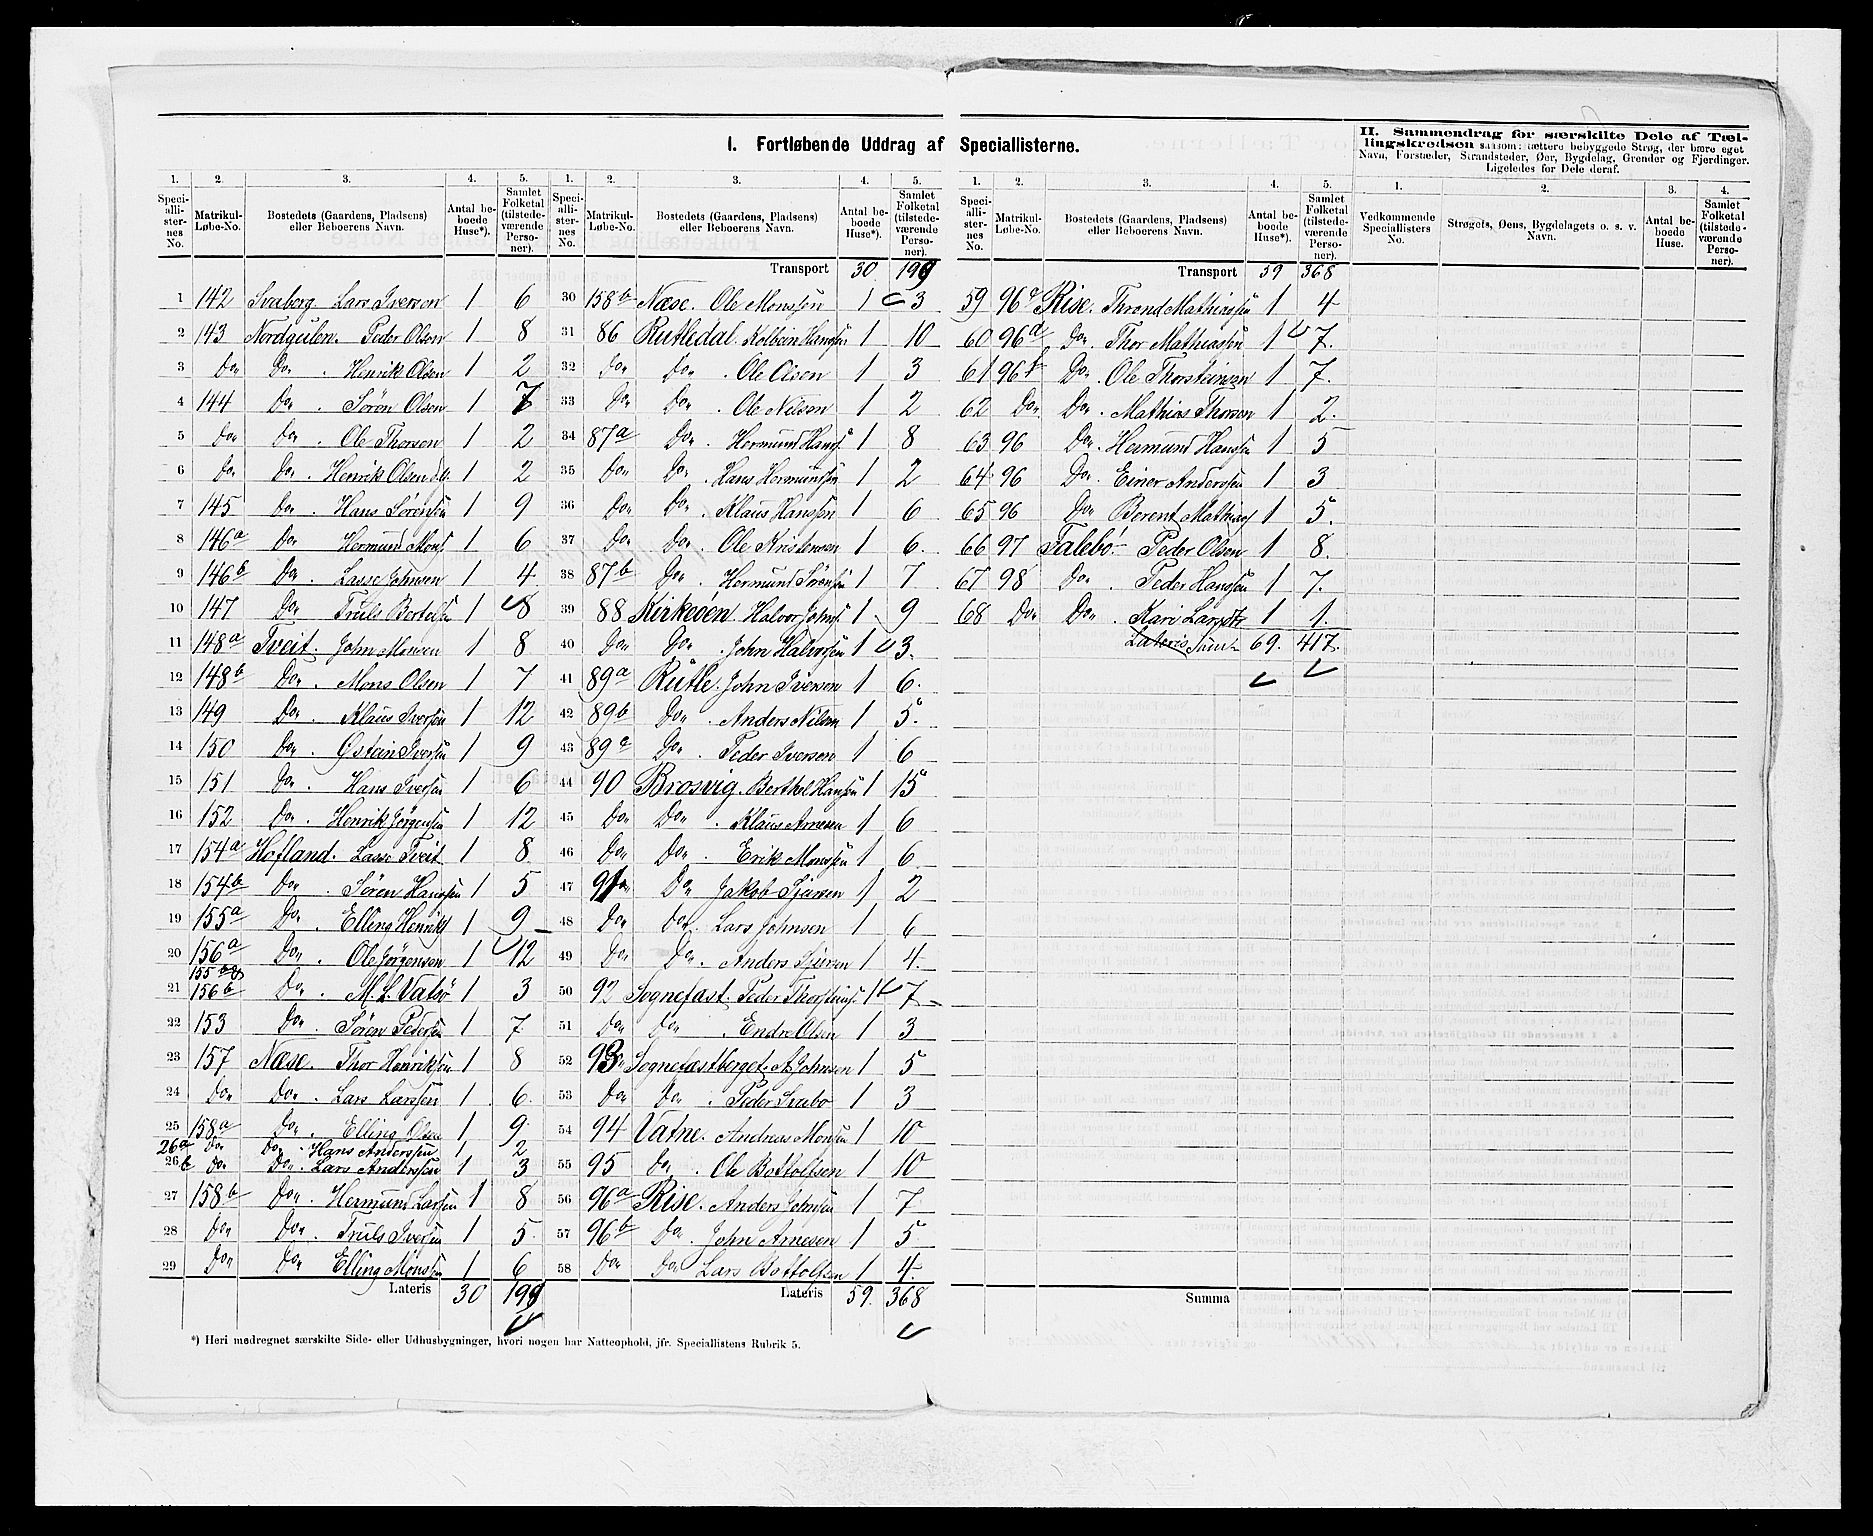 I. Fortløbende Uddrag af Speciallisterne.
1. 2. 3. 4. 5.
Speciallisternes No. Matrikul-Løbe-No. Bostedets (Gaardens, Pladsens) eller Beboerens Navn. Antal beboede Huse*). Samlet Folketal (tilstedeværende Personer).
1 142 Svaberg Lars Iverson 1 6
2 143 Nordgulen. Peder Olson 1 8
3 Do Do . Henrik Olsen 1 2
4 144 Do . Søren Olsen 1 7
5 Do Do . Ole Thorsen 1 2
6 Do Do . Henrik Olsen 1 2
7 145 Do . Hans Sørensen 1 9
8 146a Do Hermund Mons. 1 6
9 146b Do . Lasse Johnsen 1 4
10 147 Do Truls Bertelsen 1 8
11 148a Tveit. John Monsen 1 8
12 148b Do . Mons Olsen 1 7
13 149 Do . Klaus Iversen 1 12
14 150 Do . Østein Iversen 1 9
15 151 Do . Hans Iversen 1 6
16 152 Do . Henrik Jørgensen 1 12
17 154a Hofland. Lasse Tveit 1 8
18 154b Do . Søren Hanssen 1 5
19 155a Do . Elling Henriks 1 9
20 156a Do . Ole Jørgensen 1 12
155
21 156b Do . M. L. Vatsø 1 3
22 153 Do . Søren Pedersen 1 7
23 157 Næse. Thor Henriksen 1 8
24 Do Do . Lars Larssen 1 6
25 158a Do . Elling Olsen 1 9
26a Do Do . Hans Anderssen 1 2
26b Do Do . Lars Anderssen 1 3
27 158b Do . Hermund Larsen 1 8
28 Do Do . Truls Iversen 1 5
29 Do Do Elling Monssen 1 6
Lateris 30 199
1. 2. 3. 4. 5.
Speciallisternes No. Matrikul-Løbe-No. Bostedets (Gaardens, Pladsens) eller Beboerens Navn. Antal beboede Huse*). Samlet Folketal (tilstedeværende Personer).
Transport 30 199
30 158b Næse. Ole Monssen 1 3
31 86 Rutledal. Kolbein Hanssen 1 10
32 Do Do . Ole Olsen 1 3
33 Do Do . Ole Nilsen 1 2
34 87a Do . Hermund Hans 1 8
35 Do Do . Hans Hermundsen 1 2
36 Do Do . Klaus Hanssen 1 6
37 Do Do . Ole Kristensen 1 6.
38 87b Do . Hermund Sørensen 1 7
39 88 Kirkeøen. Halvor Johns. 1 9
40 Do Do . John Halvorsen 1 3.
41 89a Rutle. John Iversen 1 6.
42 89b Do . Anders Nilsen 1 5.
43 89c Do . Peder Iversen 1 6
44 90 Brosvig. Berthel Hansen 1 15
45 Do Do . Klaus Arnesen 1 6
46 Do Do . Erik Monssen 1 6
47 91 Do Jakob Sjursen 1 2
48 Do Do . Lars Johnsen 1 6
49 Do Do . Anders Sjursen 1 4.
50 92 Sognefast. Peder Thorsteins. 1 7
51 Do Do . Endre Olsen 1 3
52 93 Sognefastberget. A Johnsen 1 5
53 Do Do . Peder Svabo 1 3
54 94 Vatne. Andreas Monsen 1 10
55 95 Do . Ole Bottolfsen 1 10
56 96a Rise. Anders Johnsen 1 7
57 96b Do . John Arnesen 1 5
58 Do Do Lars Bottolfsen 1 4.
Lateris 59. 368
1. 2. 3. 4. 5.
Speciallisternes No. Matrikul-Løbe-No. Bostedets (Gaardens, Pladsens) eller Beboerens Navn. Antal beboede Huse*). Samlet Folketal (tilstedeværende Personer).
Transport 59 368
59 96c Rise. Thrond Mathiassen 1 4
60 96d Do . Thor Mathiassen 1 7.
61 96f Do . Ole Thorsteinsen 1 7.
62 Do Do . Mathias Thorsen 1 2.
63 96 Do . Hermund Hanssen 1 5
64 96 Do . Einer Anderssen 1 3
65 96 Do Berent Mathias 1 5.
66 97 Falebø Peder Olsen 1 8.
67 98 Do . Peder Hanssen 1 7.
68 Do Do . Kari Larsdtr 1 1.
Lateris Sum 69. 417.
Summa
II. Sammendrag for særskilte Dele af Tællingskredsen saasom: tættere bebyggede Strøg, der bære eget Navn, Forstæder, Strandsteder, Øer, Bygdelag, Grender og Fjerdinger. Ligeledes for Dele deraf.
1. 2. 3. 4.
Vedkommende Speciallisters No. Strøgets, Øens, Bygdelagets o. s. v. Navn. Antal beboede Huse. Samlet Folketal (tilstedeværende Personer).
*) Heri medregnet særskilte Side- eller Udhusbygninger, hvori nogen har Natteophold, jfr. Speciallistens Rubrik 5.